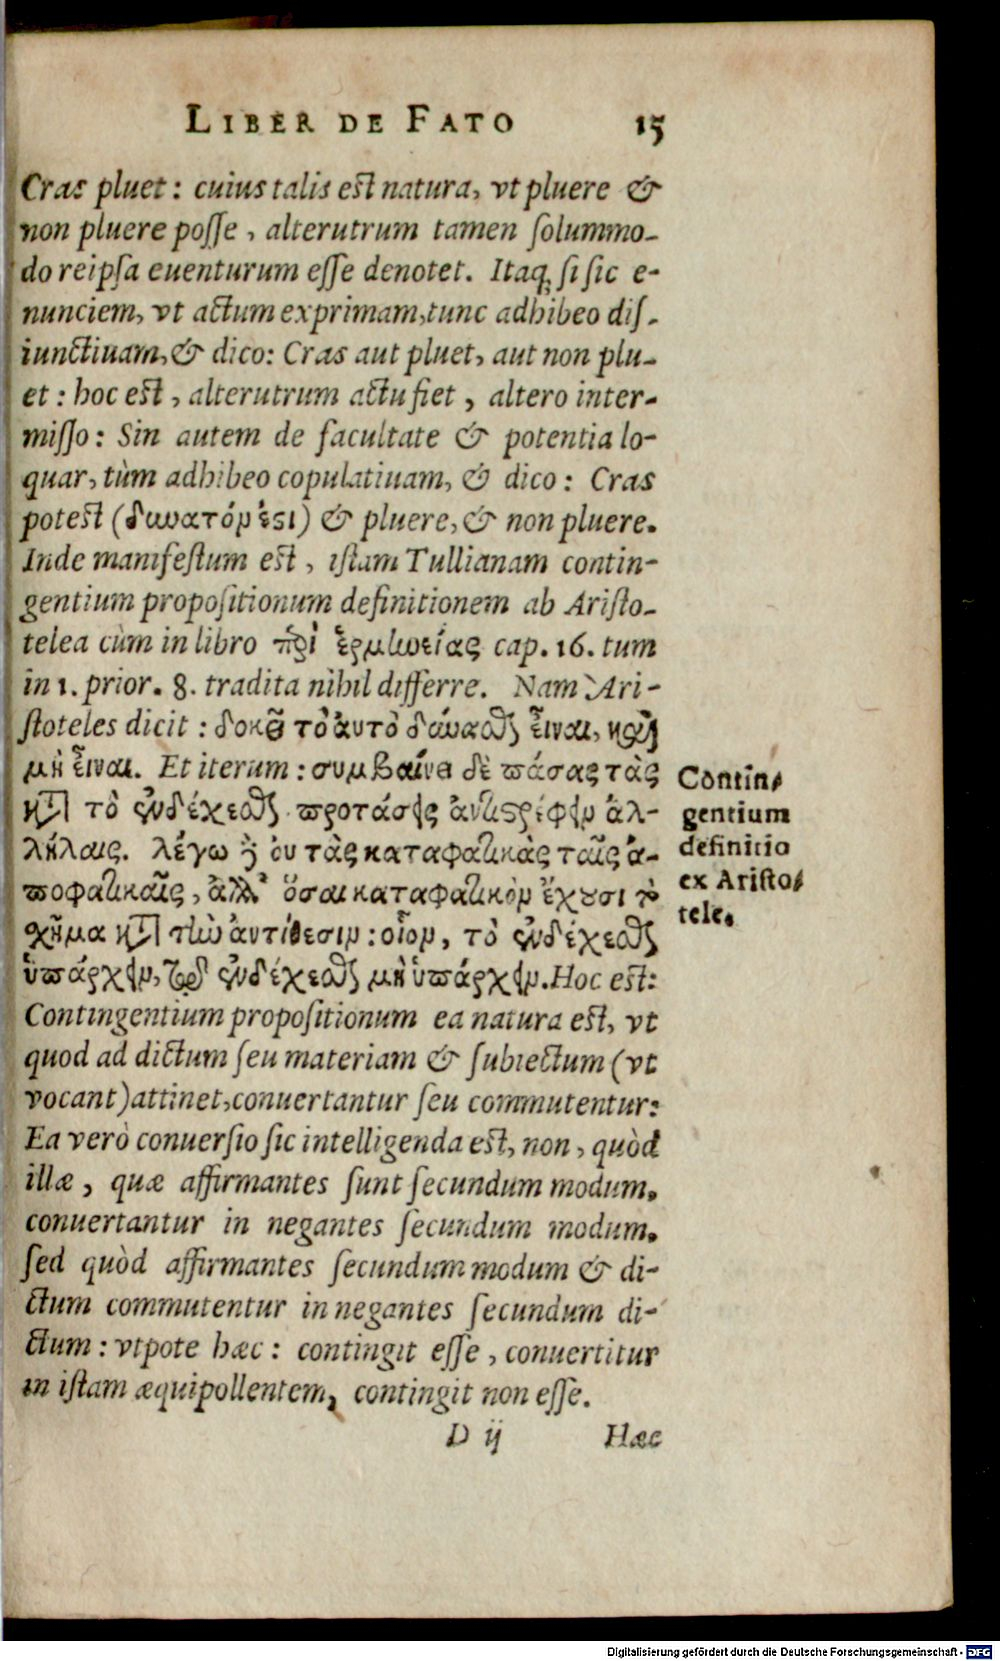 LIBER DE FATO 15
Cras pluet: cuius talis est natura, vt pluere &
non pluere posse, alterutrum tamen solummo-
do reipsa euenturum esse denotet. Itaq; si sic e-
nunciem, vt actum exprimam, tunc adhibeo dis-
iunctiuam, & dico: Cras aut pluet, aut non plu-
et: hoc est, alterutrum actu fiet, altero inter-
misso: Sin autem de facultate & potentia lo-
quar, tùm adhibeo copulatiuam, & dico: Cras
potest (δυνατόν ἐστι) & pluere, & non pluere.
Inde manifestum est, istam Tullianam contin-
gentium propositionum definitionem ab Aristo-
telea cùm in libro περὶ ἑρμηνείας cap. 16. tum
in 1. prior. 8. tradita nihil differre. Nam Ari-
stoteles dicit: δοκεῖ τὸ ἀυτὸ δύνασθαι εἶναι, καὶ
μὴ εἶναι. Et iterum: συμβαίνει δὲ πάσας τὰς
κατὰ τὸ ἐνδέχεσθαι προτάσεις ἀντιστρέφειν ἀλ-
λήλαις. λέγω δὲ ὀυ τὰς καταφατικὰς ταῖς ἀ-
ποφατικαῖς, ἀλλ' ὅσαι καταφατικὸν ἔχουσι τὸ
σχῆμα κατὰ τὴν ἀντίθεσιν: οἷον, τὸ ἐνδέχεσθαι
ὑπάρχειν, τῷ ἐνδέχεσθαι μὴ ὑπάρχειν. Hoc est:
Contingentium propositionum ea natura est, vt
quod ad dictum seu materiam & subiectum (vt
vocant) attinet, conuertantur seu commutentur:
Ea verò conuersio sic intelligenda est, non, quòd
illæ, quæ affirmantes sunt secundum modum,
conuertantur in negantes secundum modum,
sed quòd affirmantes secundum modum & di-
ctum commutentur in negantes secundum di-
ctum: vtpote hæc: contingit esse, conuertitur
in istam æquipollentem, contingit non esse.
D ij Hæc
Contin-
gentium
definitio
ex Aristo-
tele.
Digitalisierung gefördert durch die Deutsche Forschungsgemeinschaft - DFG